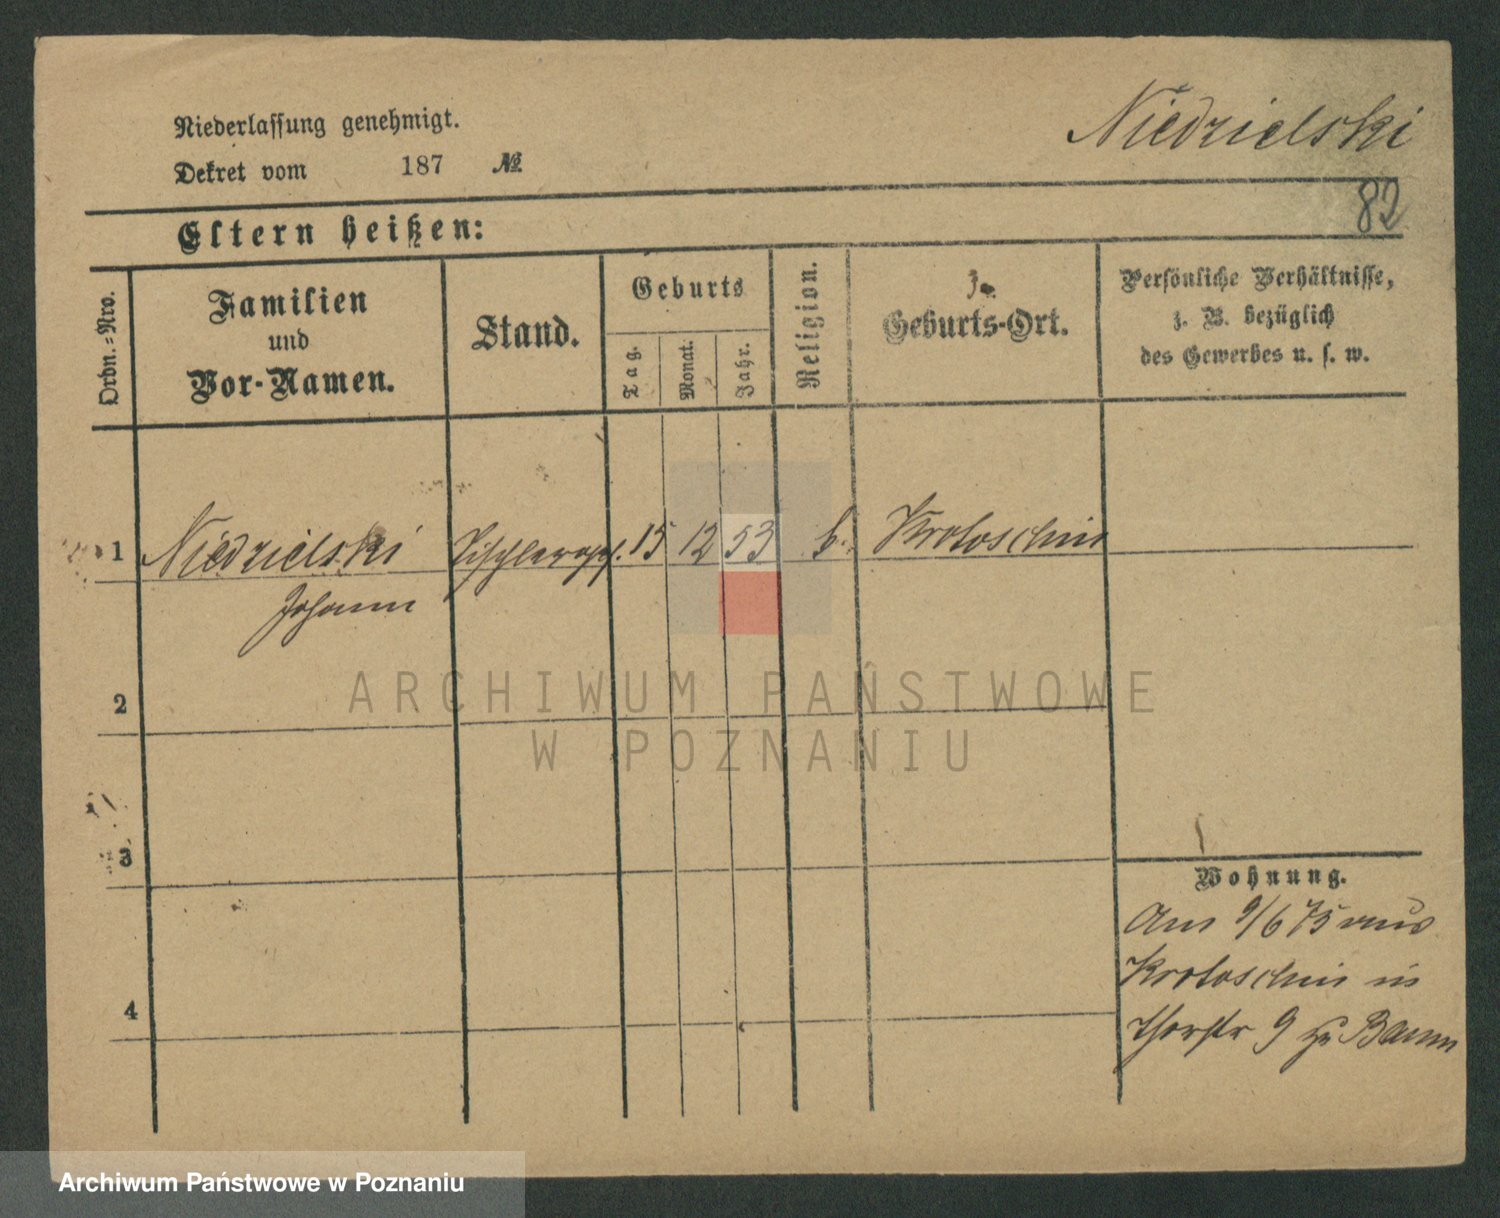 Niedzielski
Niederlassung genehmigt.
Dekret vom 187 №
82
Eltern heißen:
Ordn.-Nro.
Familien
und
Vor-Namen.
Stand.
Geburts
Tag.
Monat.
Jahr.
Religion.
Geburts-Ort.
Persönliche Verhältnisse,
z. B. bezüglich
des Gewerbes u. s. w.
1 Niedzielski Tischlergeh. 15 12 53 k. Krotoschin
Johann
2
3
4
Wohnung.
Am 9/6 75 aus
Krotoschin in
Thorstr 9 zu Baum
ARCHIWUM PAŃSTWOWE
W POZNANIU
Archiwum Państwowe w Poznaniu